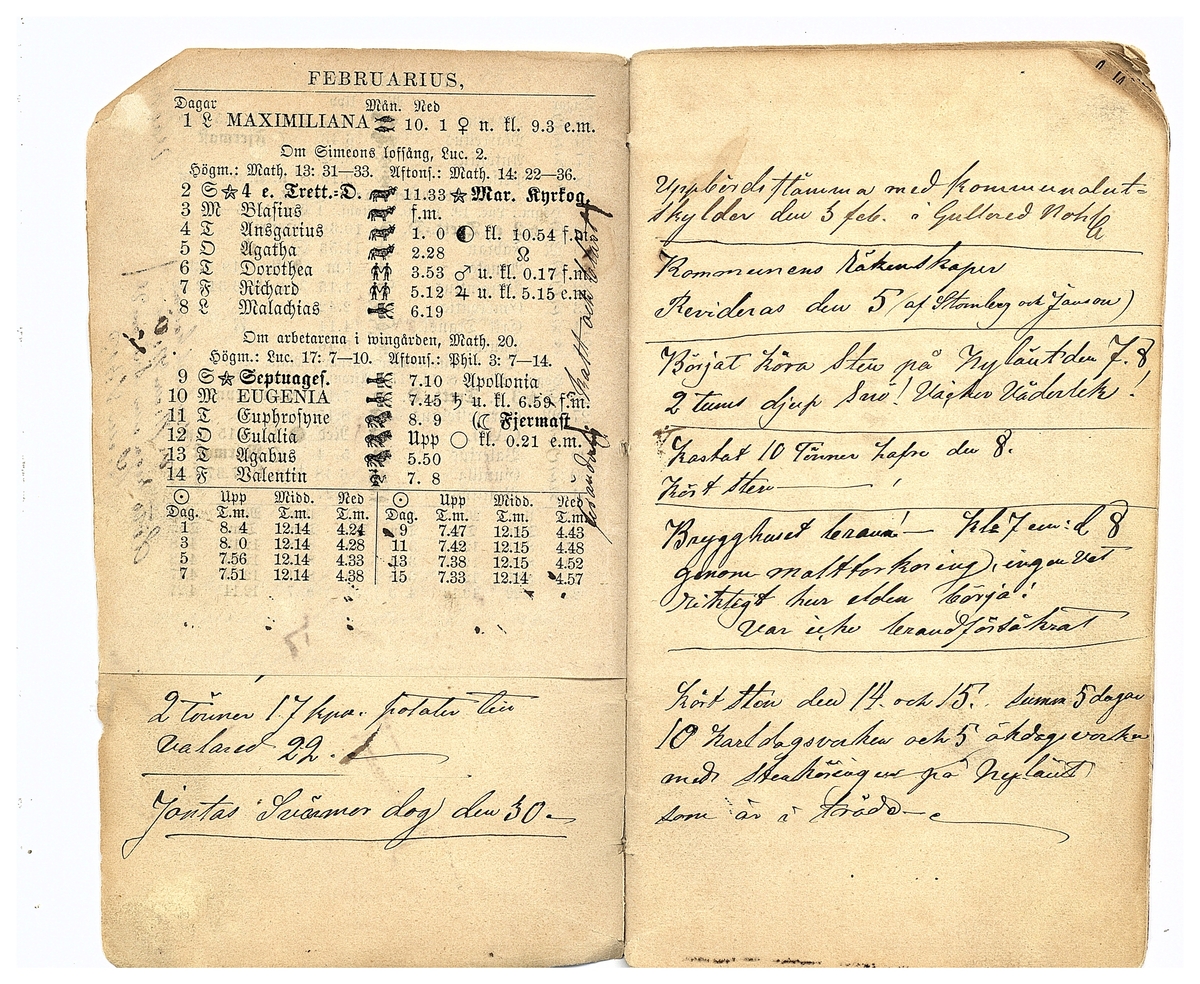 FEBRUARIUS,
Dagar Mån. Ned
1 L MAXIMILIANA 10. 1 ♀ n. kl. 9.3 e.m.
Om Simeons lofsång, Luc. 2.
Högm.: Math. 13: 31—33. Aftons.: Math. 14: 22—36.
2 S☆4 e. Trett.-D. 11.33 ☆Mar. Kyrkog.
3 M Blasius f.m.
4 T Ansgarius 1. 0 kl. 10.54 f.m.
5 O Agatha 2.28 ☊
6 T Dorothea 3.53 ♂ u. kl. 0.17 f.m.
7 F Richard 5.12 ♃ u. kl. 5.15 e.m.
8 L Malachias 6.19
Om arbetarena i wingården, Math. 20.
Högm.: Luc. 17: 7—10. Aftons.: Phil. 3: 7—14.
9 S☆ Septuages. 7.10 Apollonia
10 M EUGENIA 7.45 ♄ u. kl. 6.59 f.m.
11 T Euphrosyne 8. 9 (☾ Fjermast
12 O Eulalia Upp ○ kl. 0.21 e.m.
13 T Agabus 5.50
14 F Valentin 7. 8
☉ Upp Midd. Ned ☉ Upp Midd. Ned
Dag. T.m. T.m. T.m. Dag. T.m. T.m. T.m.
1 8. 4 12.14 4.24 9 7.47 12.15 4.43
3 8. 0 12.14 4.28 11 7.42 12.15 4.48
5 7.56 12.14 4.33 13 7.38 12.15 4.52
7 7.51 12.14 4.38 15 7.33 12.14 4.57
2 tönner 17 kpr. potater till
Valared 22.
Jontas Svärmor dog den 30.
Uppbördstämma med kommunalut-
skylder den 3 feb. i Gullered Nohlg
Kommunens Räkenskaper
Revideras den 5 (af Stomberg och Janson)
Börjat köra Sten på Nylänt den 7. 8
2 tums djup Snö! Vacker Väderlek!
Kastat 10 Tönner hafre den 8.
Kört sten — !
Brygghuset brann! — kl. 7 em: d 8
genom malttorkning, ingen vet
riktigt hur elden börja!
Var icke brandförsäkrat
Kört Sten den 14. och 15. Summa 5 dagar
10 karldagsverken och 5 ökdagsverken
med Stenkörningen på Nylänt
som är i träde